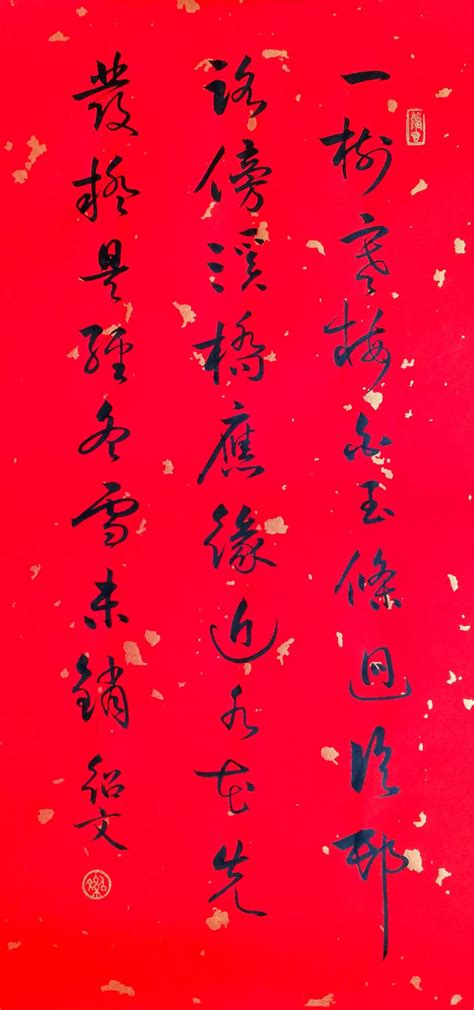 一樹寒梅白玉條迥臨邨
路傍溪橋應緣近水花先
發疑是經冬雪未銷
紹文